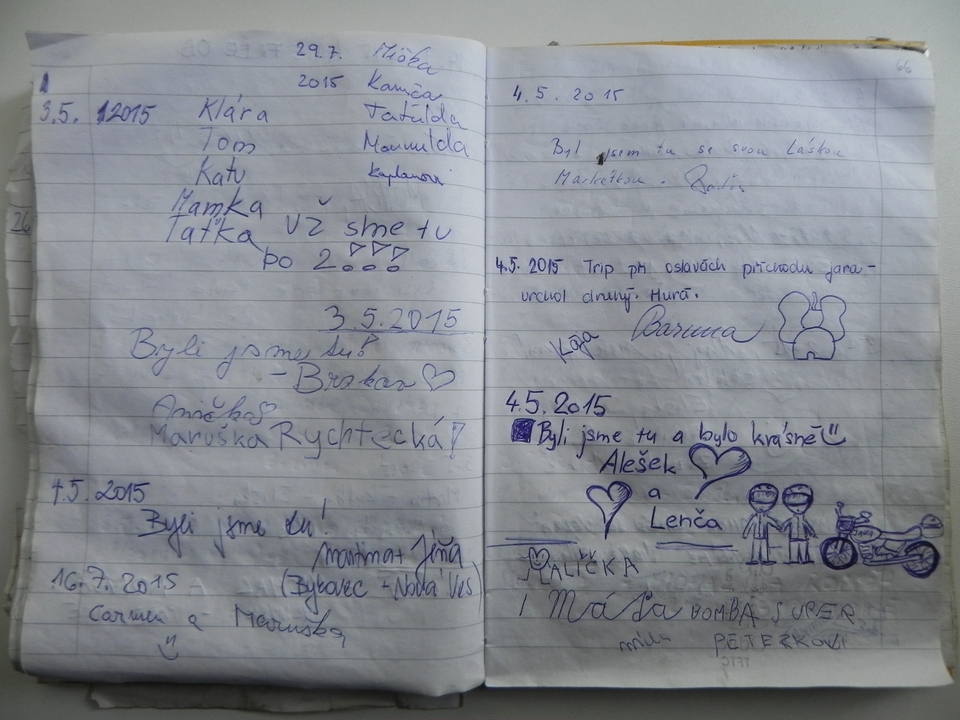 29.7. Miška
2015 Kamča
3.5. 2015 Klára Tatulda
Tom Mamulda
Katv Kaplanovi
Mamka
Taťka už sme tu
po 2!!!
3.5.2015
Byli jsme tu!
Anička
Maruška Rychtecká!
4.5. 2015
Byli jsme tu!
Martina + Jiřa
(Bykovec + Nová Ves)
16.7. 2015
Carmen a Maruška
66
4.5. 2015
Byl jsem tu se svou Láskou
Markétkou.
4.5. 2015 Trip při oslavách příchodu jara -
vrchol druhý. Hurá.
Kája Baruna
4.5.2015
Byli jsme tu a bylo krásně
Alešek
a
Lenča
MALIČKA
! Máťa BOMBA SUPER
PETEŘKOVI